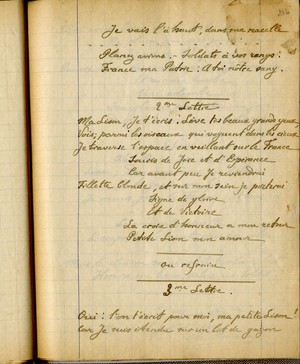 Je vais là haut, dans ma nacelle
Planez avions - Soldats à vos rangs:
France ma Patrie: A toi notre sang.
2me Lettre
Ma Lison, Je t'écris: Lève tes beaux grands yeux
Vois; parmi les oiseaux qui voguent dans les cieux
Je traverse l'espace en veillant sur la France
Souris de Joie et d'Espérance
Car avant peu Je reviendrai
Fillette blonde, et sur mon sein je porterai
Signe de gloire
Et de Victoire
La croix d'honneur a mon retour
Petite Lison mon amour
au refrain
3me Lettre.
Oui: l'on t'écrit pour moi, ma petite Lison!
Car Je suis étendu sur un lit de gazon